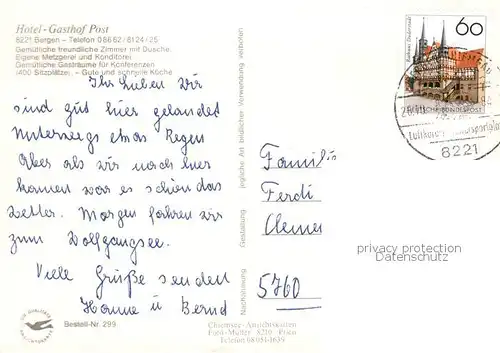 Hotel-Gasthof Post
8221 Bergen – Telefon 08662/8124/25
Gemütliche freundliche Zimmer mit Dusche.
Eigene Metzgerei und Konditorei
Gemütliche Gasträume für Konferenzen
(400 Sitzplätze). – Gute und schnelle Küche
Ihr Lieben wir
sind gut hier gelandet
Unterwegs etwas Regen
Aber als wir nach hier
kamen war es schön das
Wetter. Morgen fahren wir
zum Wolfgangsee.
Viele Grüße senden
Hanne u Bernd
Bestell-Nr. 299
Nachahmung
Gestaltung
jegliche Art bildlicher Verwendung verboten
Chiemsee-Ansichtskarten
8210 Prien
Telefon 08051-1639
60
Rathaus Duderstadt
DEUTSCHE BUNDESPOST
Luftkurort
8221
Familie
Ferdi
5760
privacy protection
Datenschutz